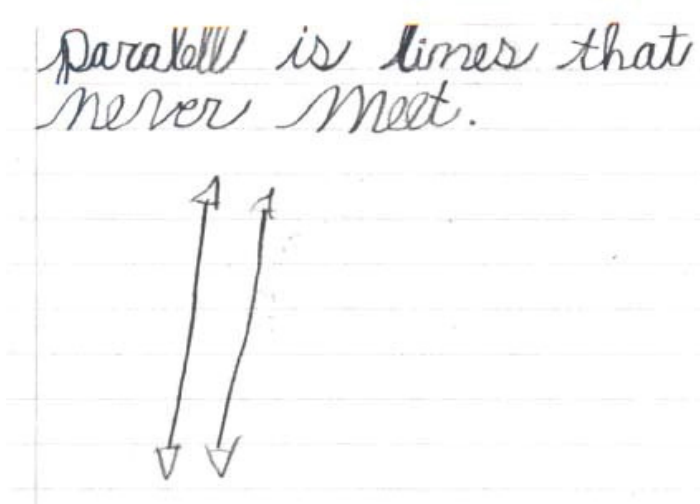 Paralell is lines that
never meet.